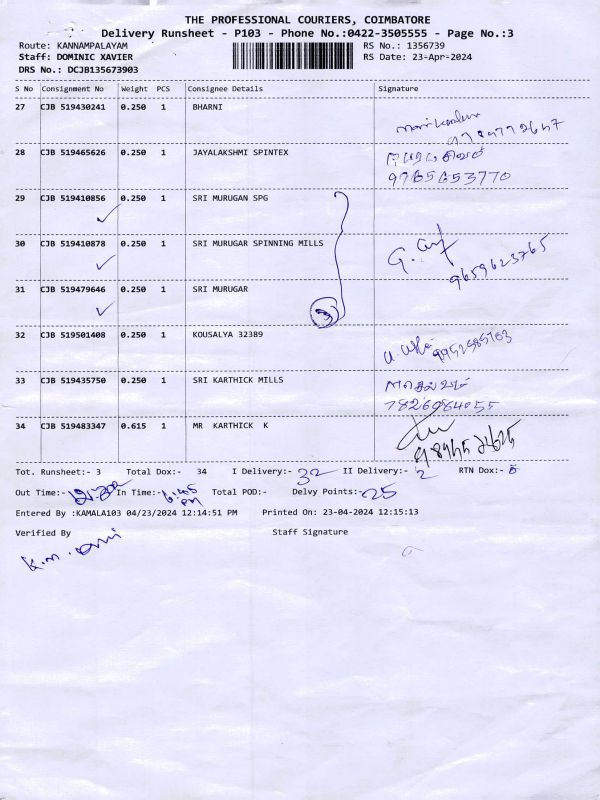 THE PROFESSIONAL COURIERS, COIMBATORE
Delivery Runsheet - P103 - Phone No.:0422-3505555 - Page No.:3
Route: KANNAMPALAYAM RS No.: 1356739
Staff: DOMINIC XAVIER RS Date: 23-Apr-2024
DRS No.: DCJB135673903
S No Consignment No Weight PCS Consignee Details Signature
27 CJB 519430241 0.250 1 BHARNI
28 CJB 519465626 0.250 1 JAYALAKSHMI SPINTEX
9765653770
29 CJB 519410856 0.250 1 SRI MURUGAN SPG
30 CJB 519410878 0.250 1 SRI MURUGAR SPINNING MILLS
9659623765
31 CJB 519479646 0.250 1 SRI MURUGAR
3
32 CJB 519501408 0.250 1 KOUSALYA 32389
33 CJB 519435750 0.250 1 SRI KARTHICK MILLS
7826064055
34 CJB 519483347 0.615 1 MR KARTHICK K
Tot. Runsheet:- 3 Total Dox:- 34 I Delivery:- 32 II Delivery:- 2 RTN Dox:-
Out Time:- In Time:- 6:45 PM Total POD:- Delvy Points:- 25
Entered By :KAMALA103 04/23/2024 12:14:51 PM Printed On: 23-04-2024 12:15:13
Verified By Staff Signature